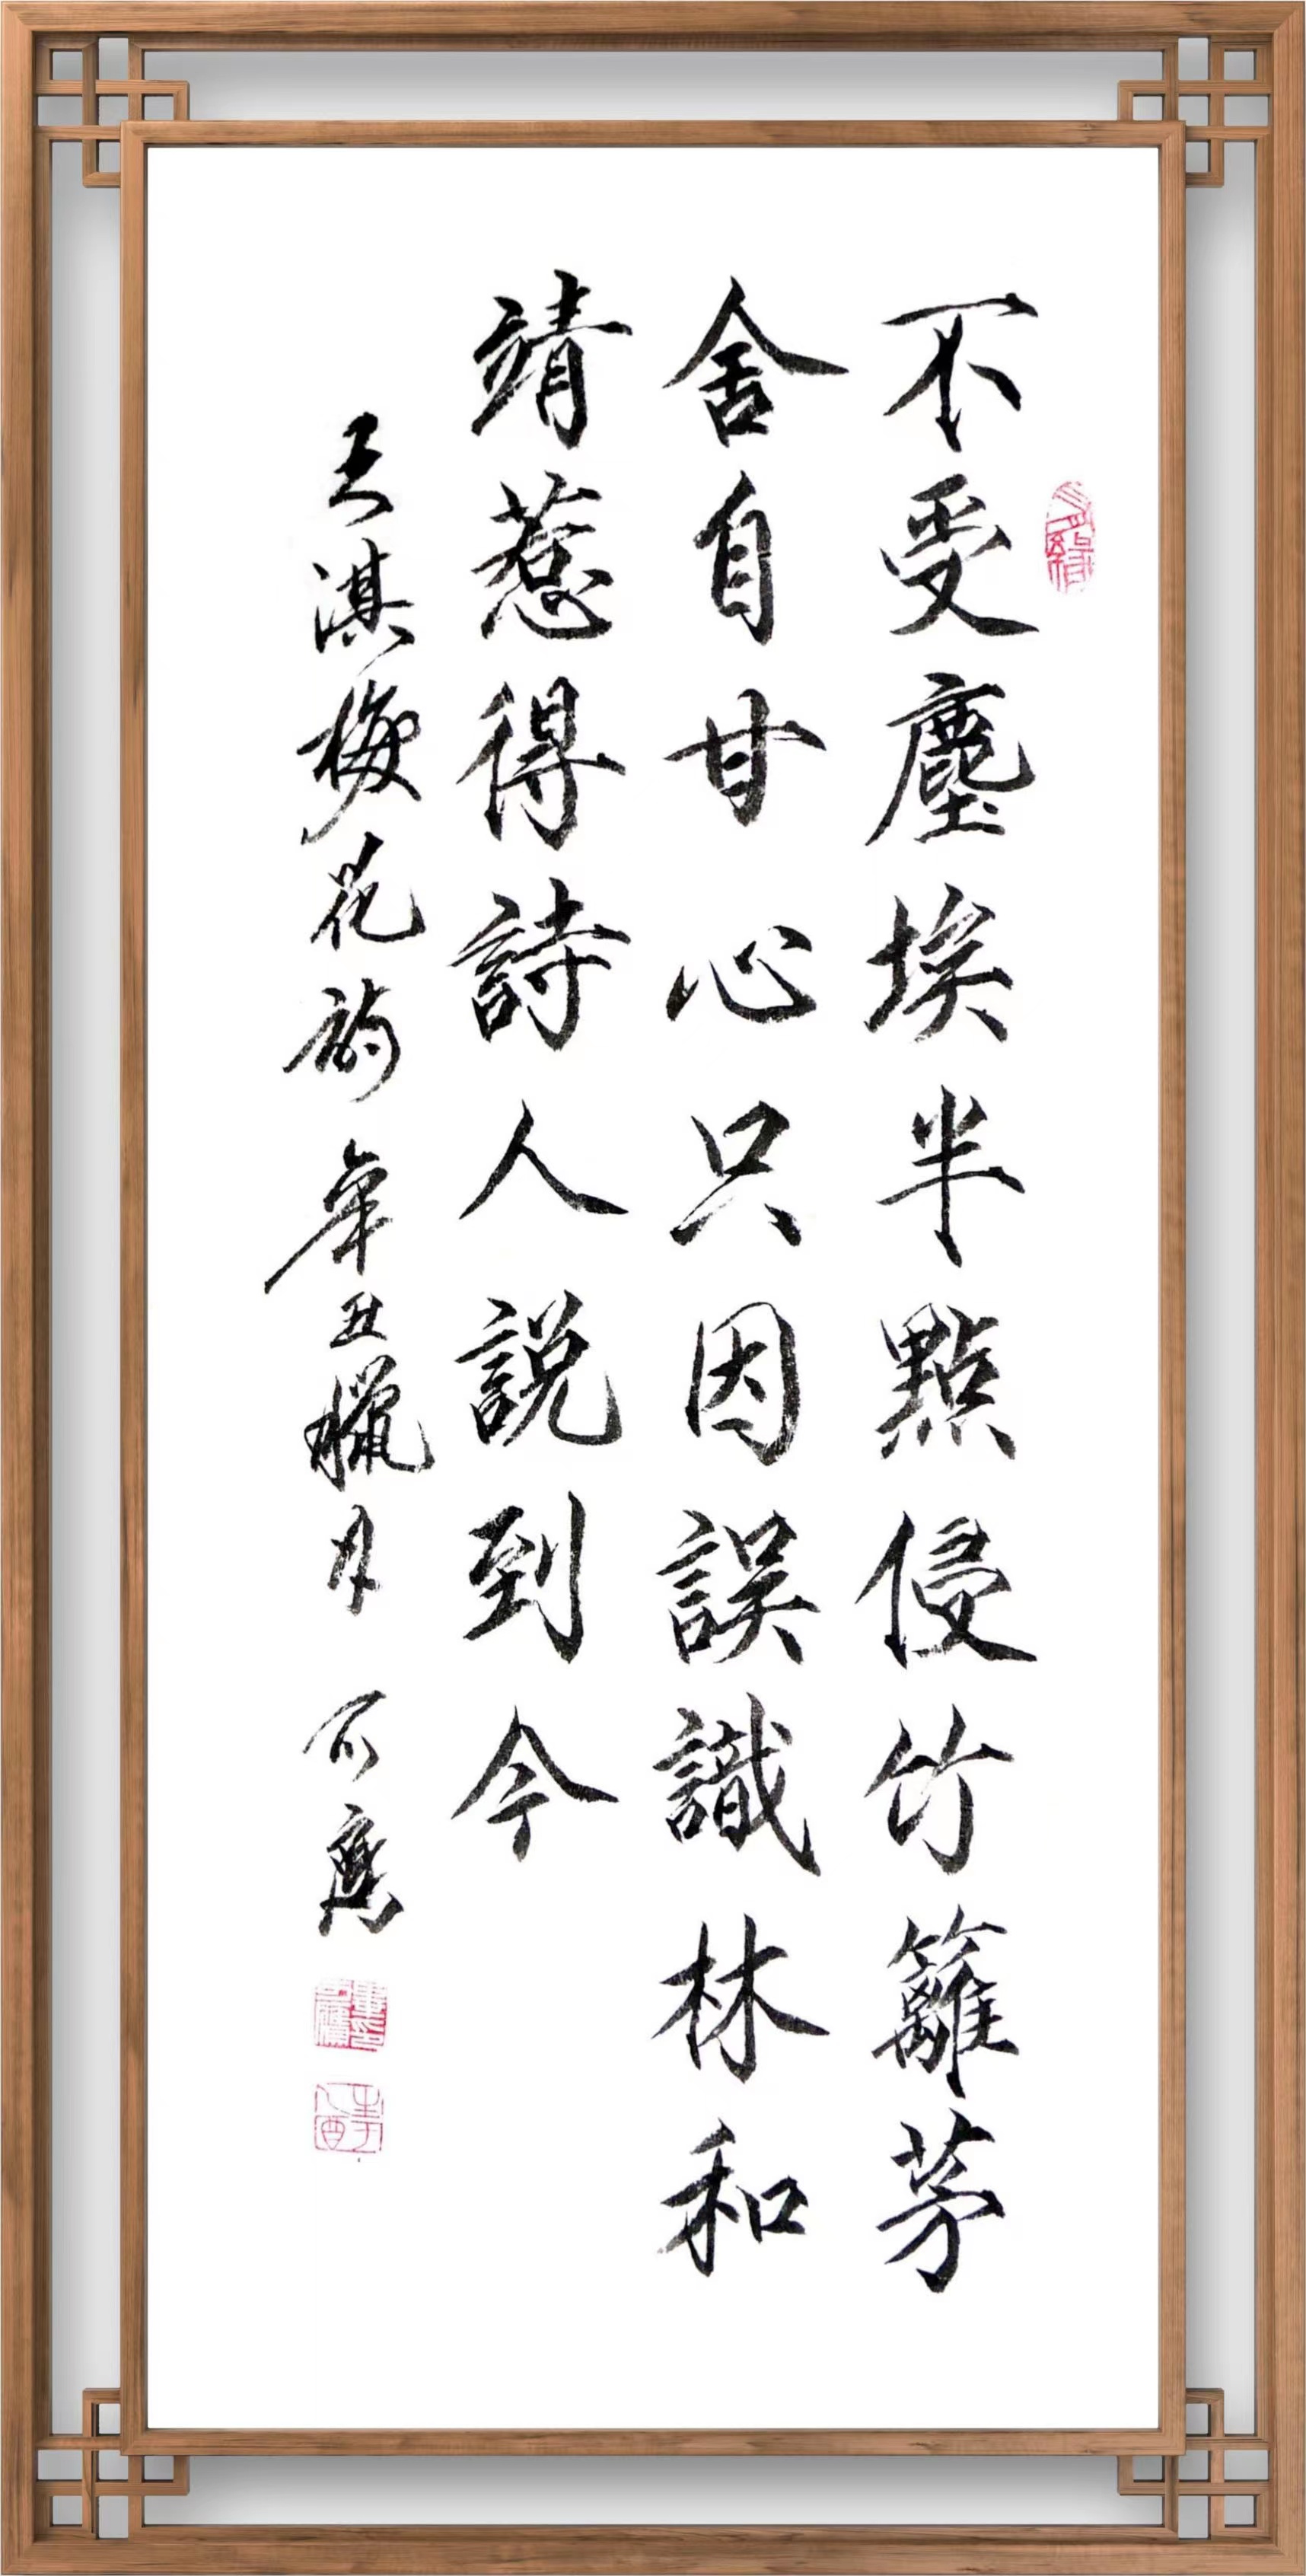 不受塵埃半點侵竹籬茅
舍自甘心只因誤識林和
靖惹得詩人説到今
王淇梅花韵辛丑臘月